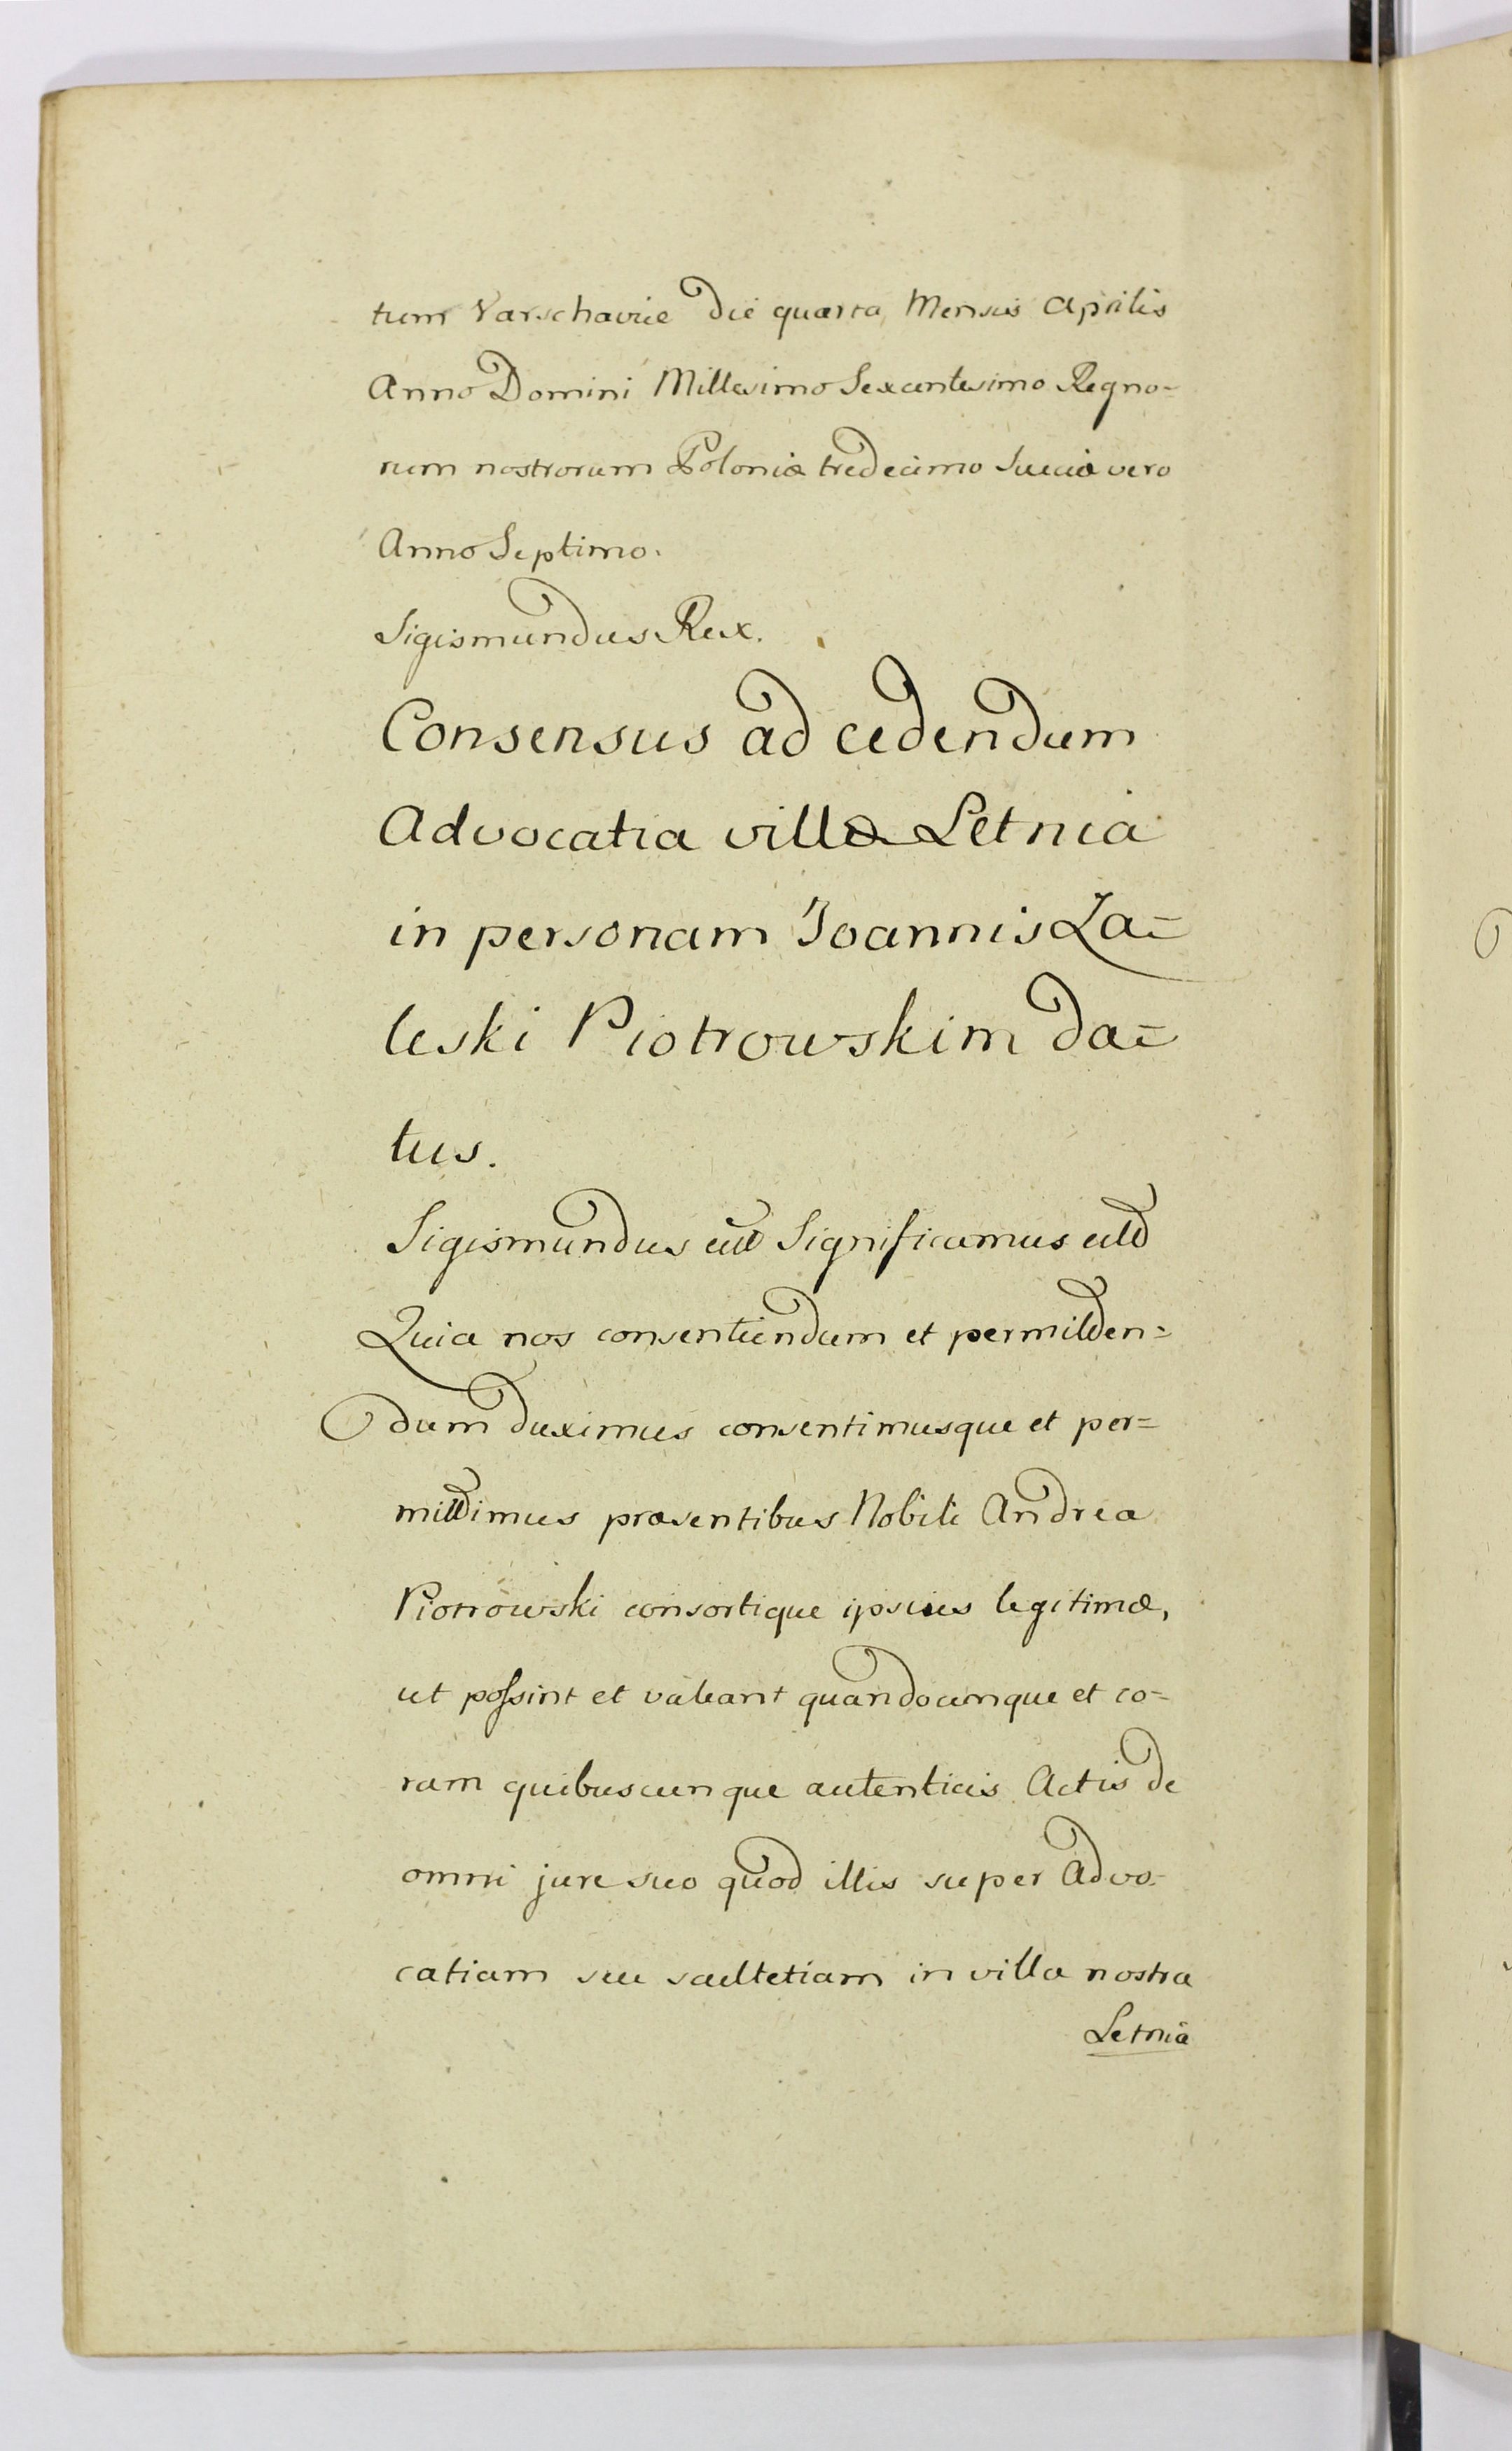 tum Varschaviæ die quarta Mensis Aprilis
Anno Domini Millesimo Sexcentesimo Regno=
rum nostrorum Poloniæ tredecimo Sueciæ vero
Anno Septimo.
Sigismundus Rex.
Consensus ad cedendum
Advocatia villæ Letnia
in personam Joannis Za=
leski Piotrowskim da=
tus.
Sigismundus ett Significamus ettd
Quia nos consentiendum et permitten=
dum duximus consentimusque et per=
mittimus præsentibus Nobili Andreæ
Piotrowski consortique ipsius legitimæ,
ut possint et valeant quandocunque et co=
ram quibuscunque autenticis Actis de
omni jure suo quod illis super Advo=
catiam seu scultetiam in villa nostra
Letnia